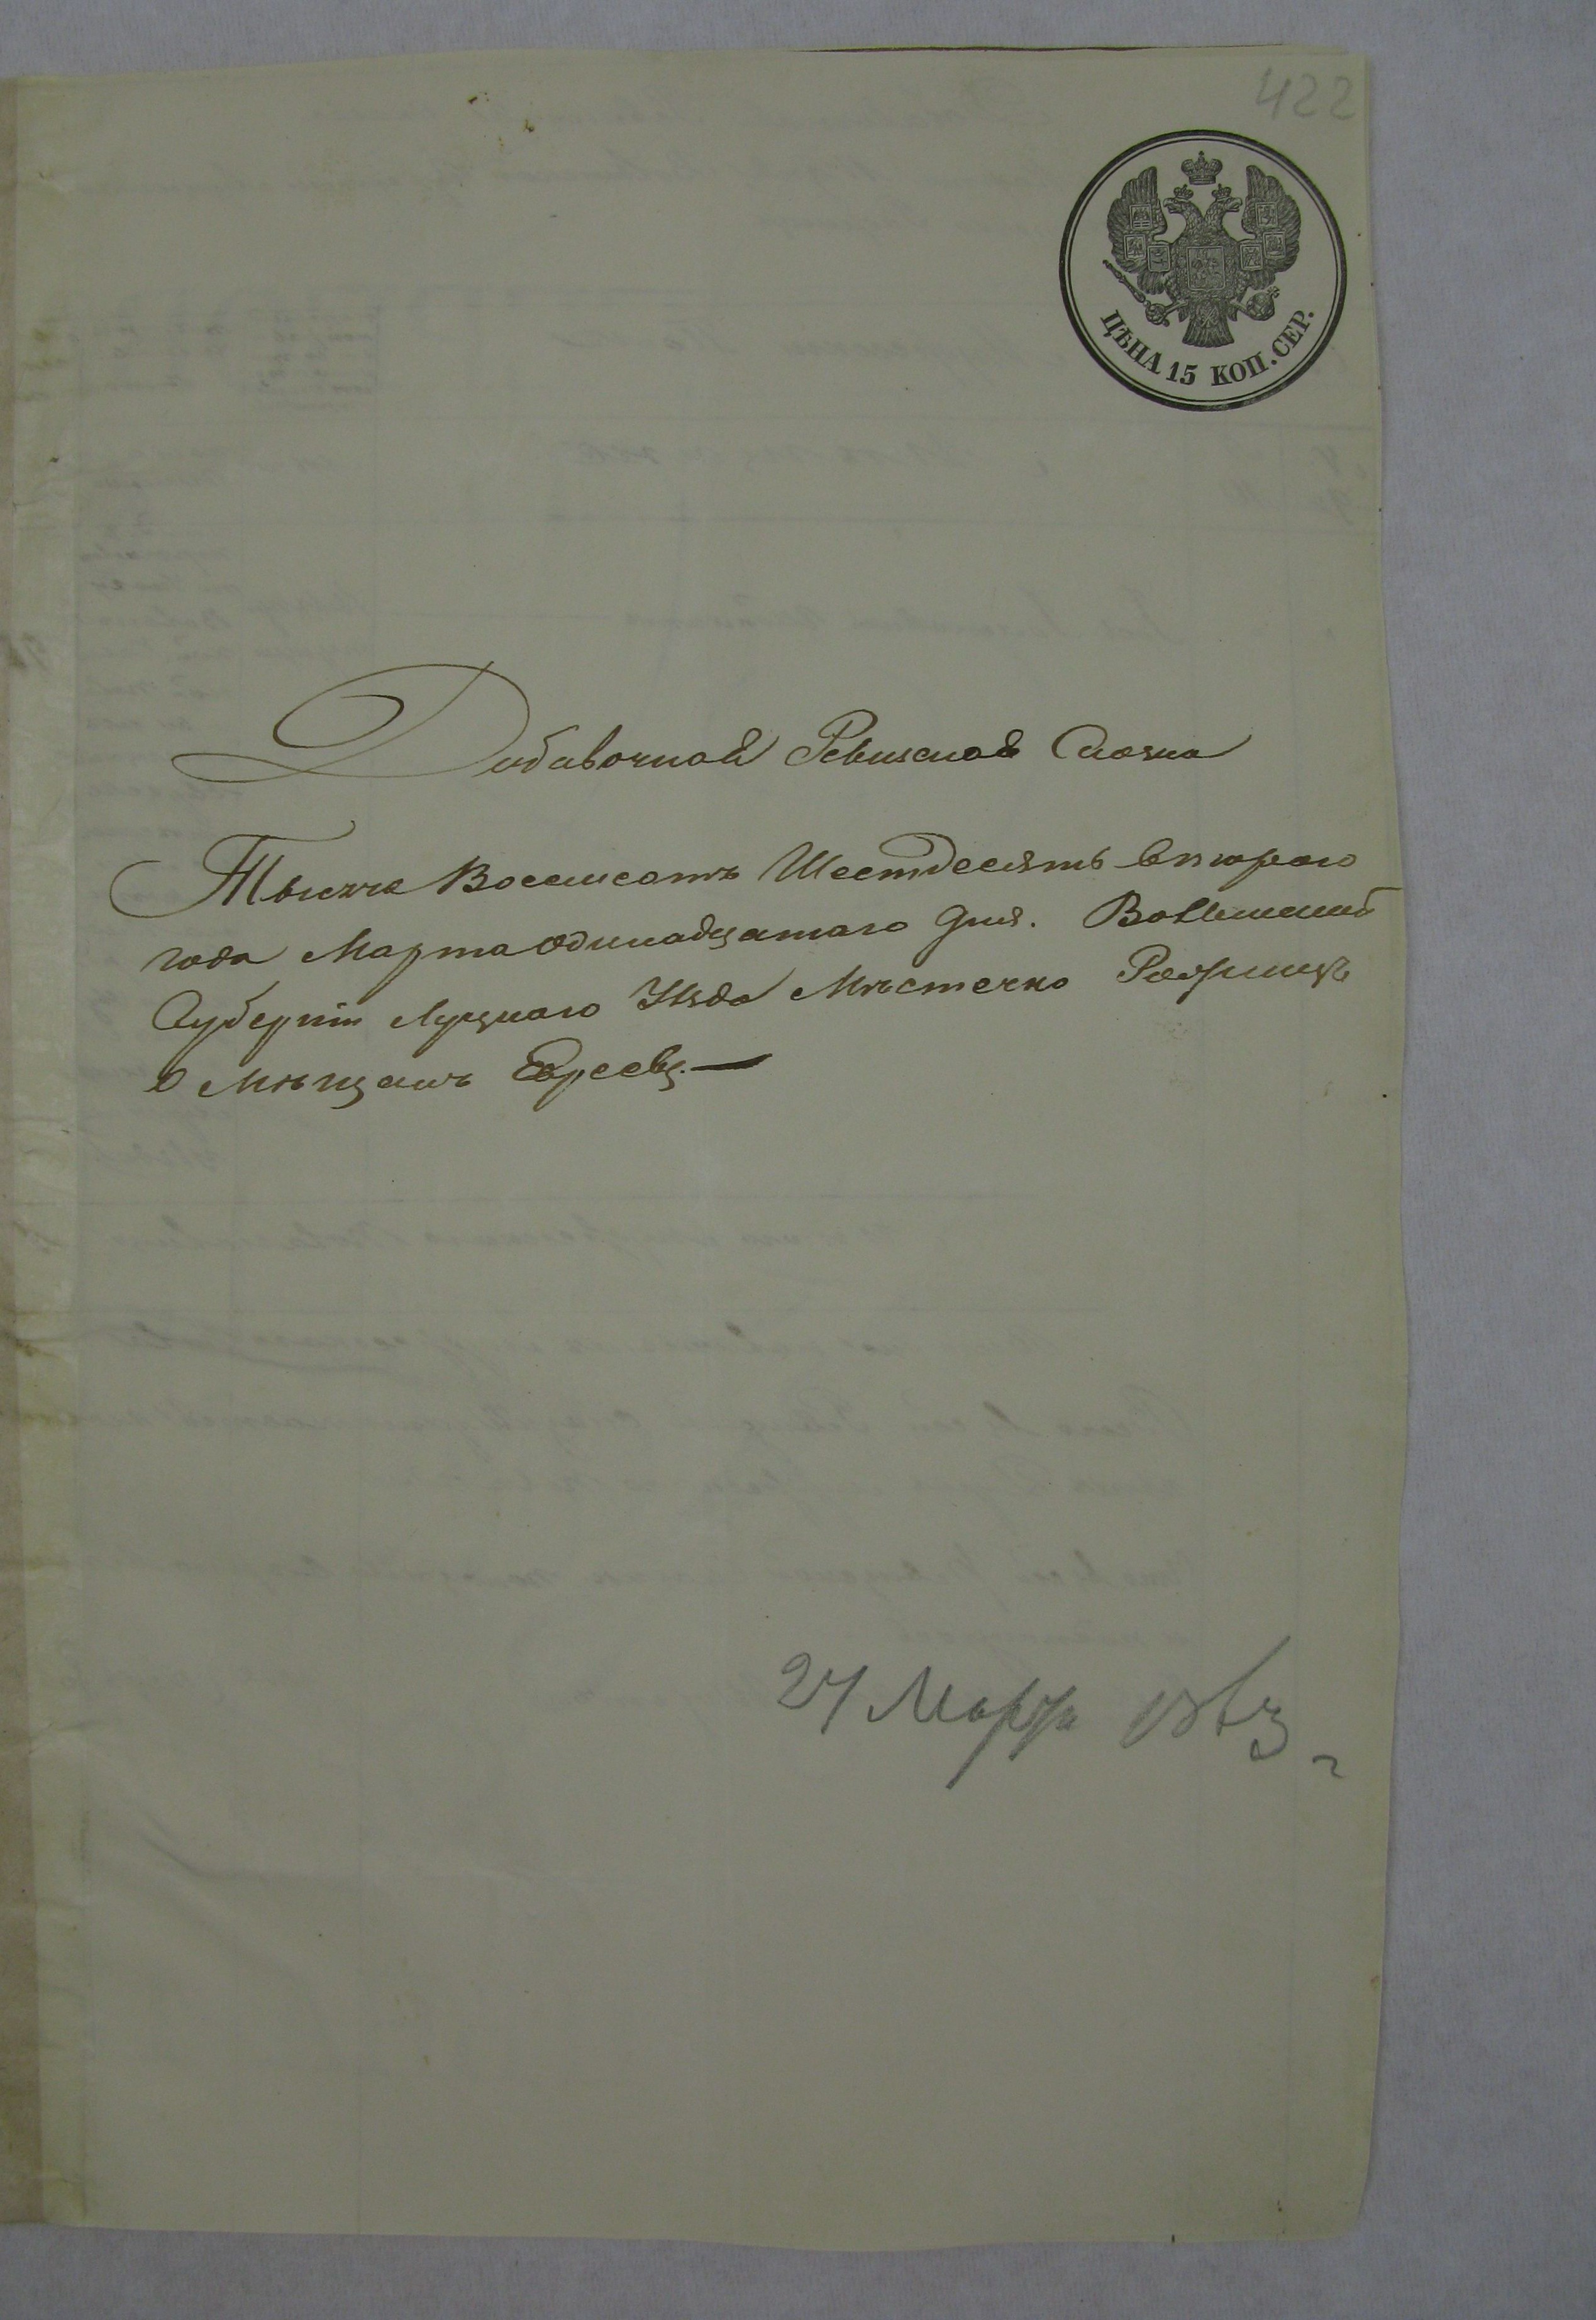 422
ЦѢНА 15 КОП. СЕР.
Добавочная Ревизская Сказка
Тысяча Восемсотъ Шестдесятъ втораго
года Марта одинадцатаго дня. Волынской
Губерніи Луцкаго Уѣзда Мѣстечка Рожищъ
о Мѣщанъ Евреевъ.—
27 Марта 1863 г